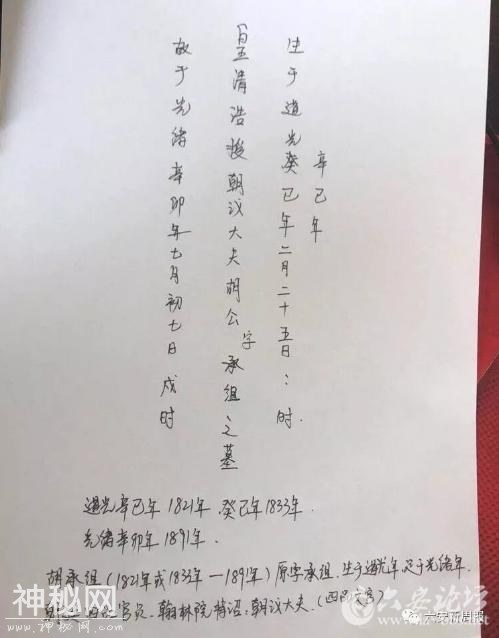 辛巳年
生于道光癸巳年二月二十五日:时.
皇清浩授朝议大夫胡公字承组之墓
故于光绪辛卯年七月初七日戍时
道光辛巳年1821年.癸巳年1833年.
光绪辛卯年1891年.
胡承组(1821年或1833年—1891年)原字承组.生于道光年.死于光绪年.
官员.翰林院待诏.朝议大夫.(四品
神秘网
www.神秘网.com
六安论坛
六安新周报